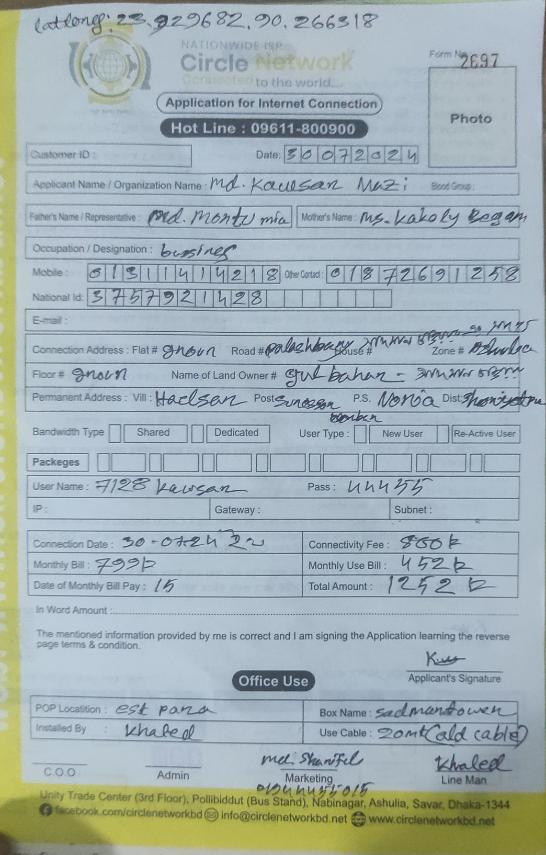 latlong: 23.929682, 90.266318
NATIONWIDE ISP
Circle Network
Connected to the world...
Form No 2697
Application for Internet Connection
Photo
Hot Line : 09611-800900
Customer ID :
Date: 30072024
Applicant Name / Organization Name : Md. Kauesan Mazi Blood Group :
Father's Name / Representative : Md. Montu mia Mother's Name : Ms. Kakoly Begam
Occupation / Designation : bussines
Mobile : 01311414218 Other Contact : 01872691258
National Id: 3757921428
E-mail :
Connection Address : Flat # Road # palashbary House # Zone # Ashulia
Floor # Name of Land Owner # gulbahar -
Permanent Address : Vill : Post P.S. Noria Dist:
Bandwidth Type Shared Dedicated User Type : New User Re-Active User
Packeges
User Name : 7128 kawsar Pass : 44455
IP : Gateway : Subnet :
Connection Date : 30-0724 Connectivity Fee : 800
Monthly Bill : 799 Monthly Use Bill : 452
Date of Monthly Bill Pay : 15 Total Amount : 1252
In Word Amount :
The mentioned information provided by me is correct and I am signing the Application learning the reverse
page terms & condition.
Applicant's Signature
Office Use
POP Locatition : est para Box Name : Sadmantower
Installed By : Khaled Use Cable : 20mt (old cable)
md. Shariful Khaled
C.O.O Admin Marketing Line Man
Unity Trade Center (3rd Floor), Pollibiddut (Bus Stand), Nabinagar, Ashulia, Savar, Dhaka-1344
facebook.com/circlenetworkbd info@circlenetworkbd.net www.circlenetworkbd.net